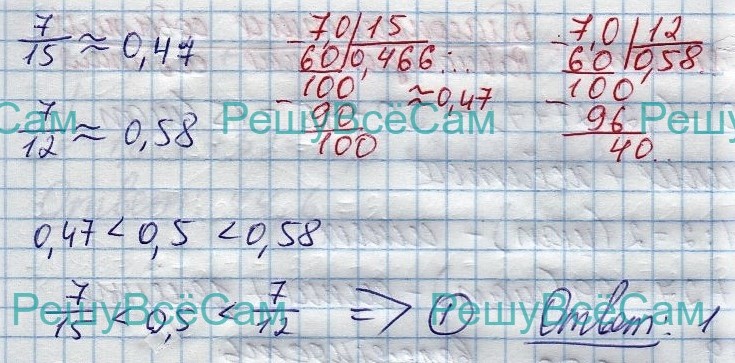 7/15 ≈ 0,47
7/12 ≈ 0,58
70 | 15
60 | 0,466...
100 ≈ 0,47
- 90
100
7,0 | 12
60 | 0,58..
100
- 96
40..
РешуВсёСам
0,47 < 0,5 < 0,58
7/15 < 0,5 < 7/12 => ① Ответ: 1
РешуВсёСам РешуВсёСам